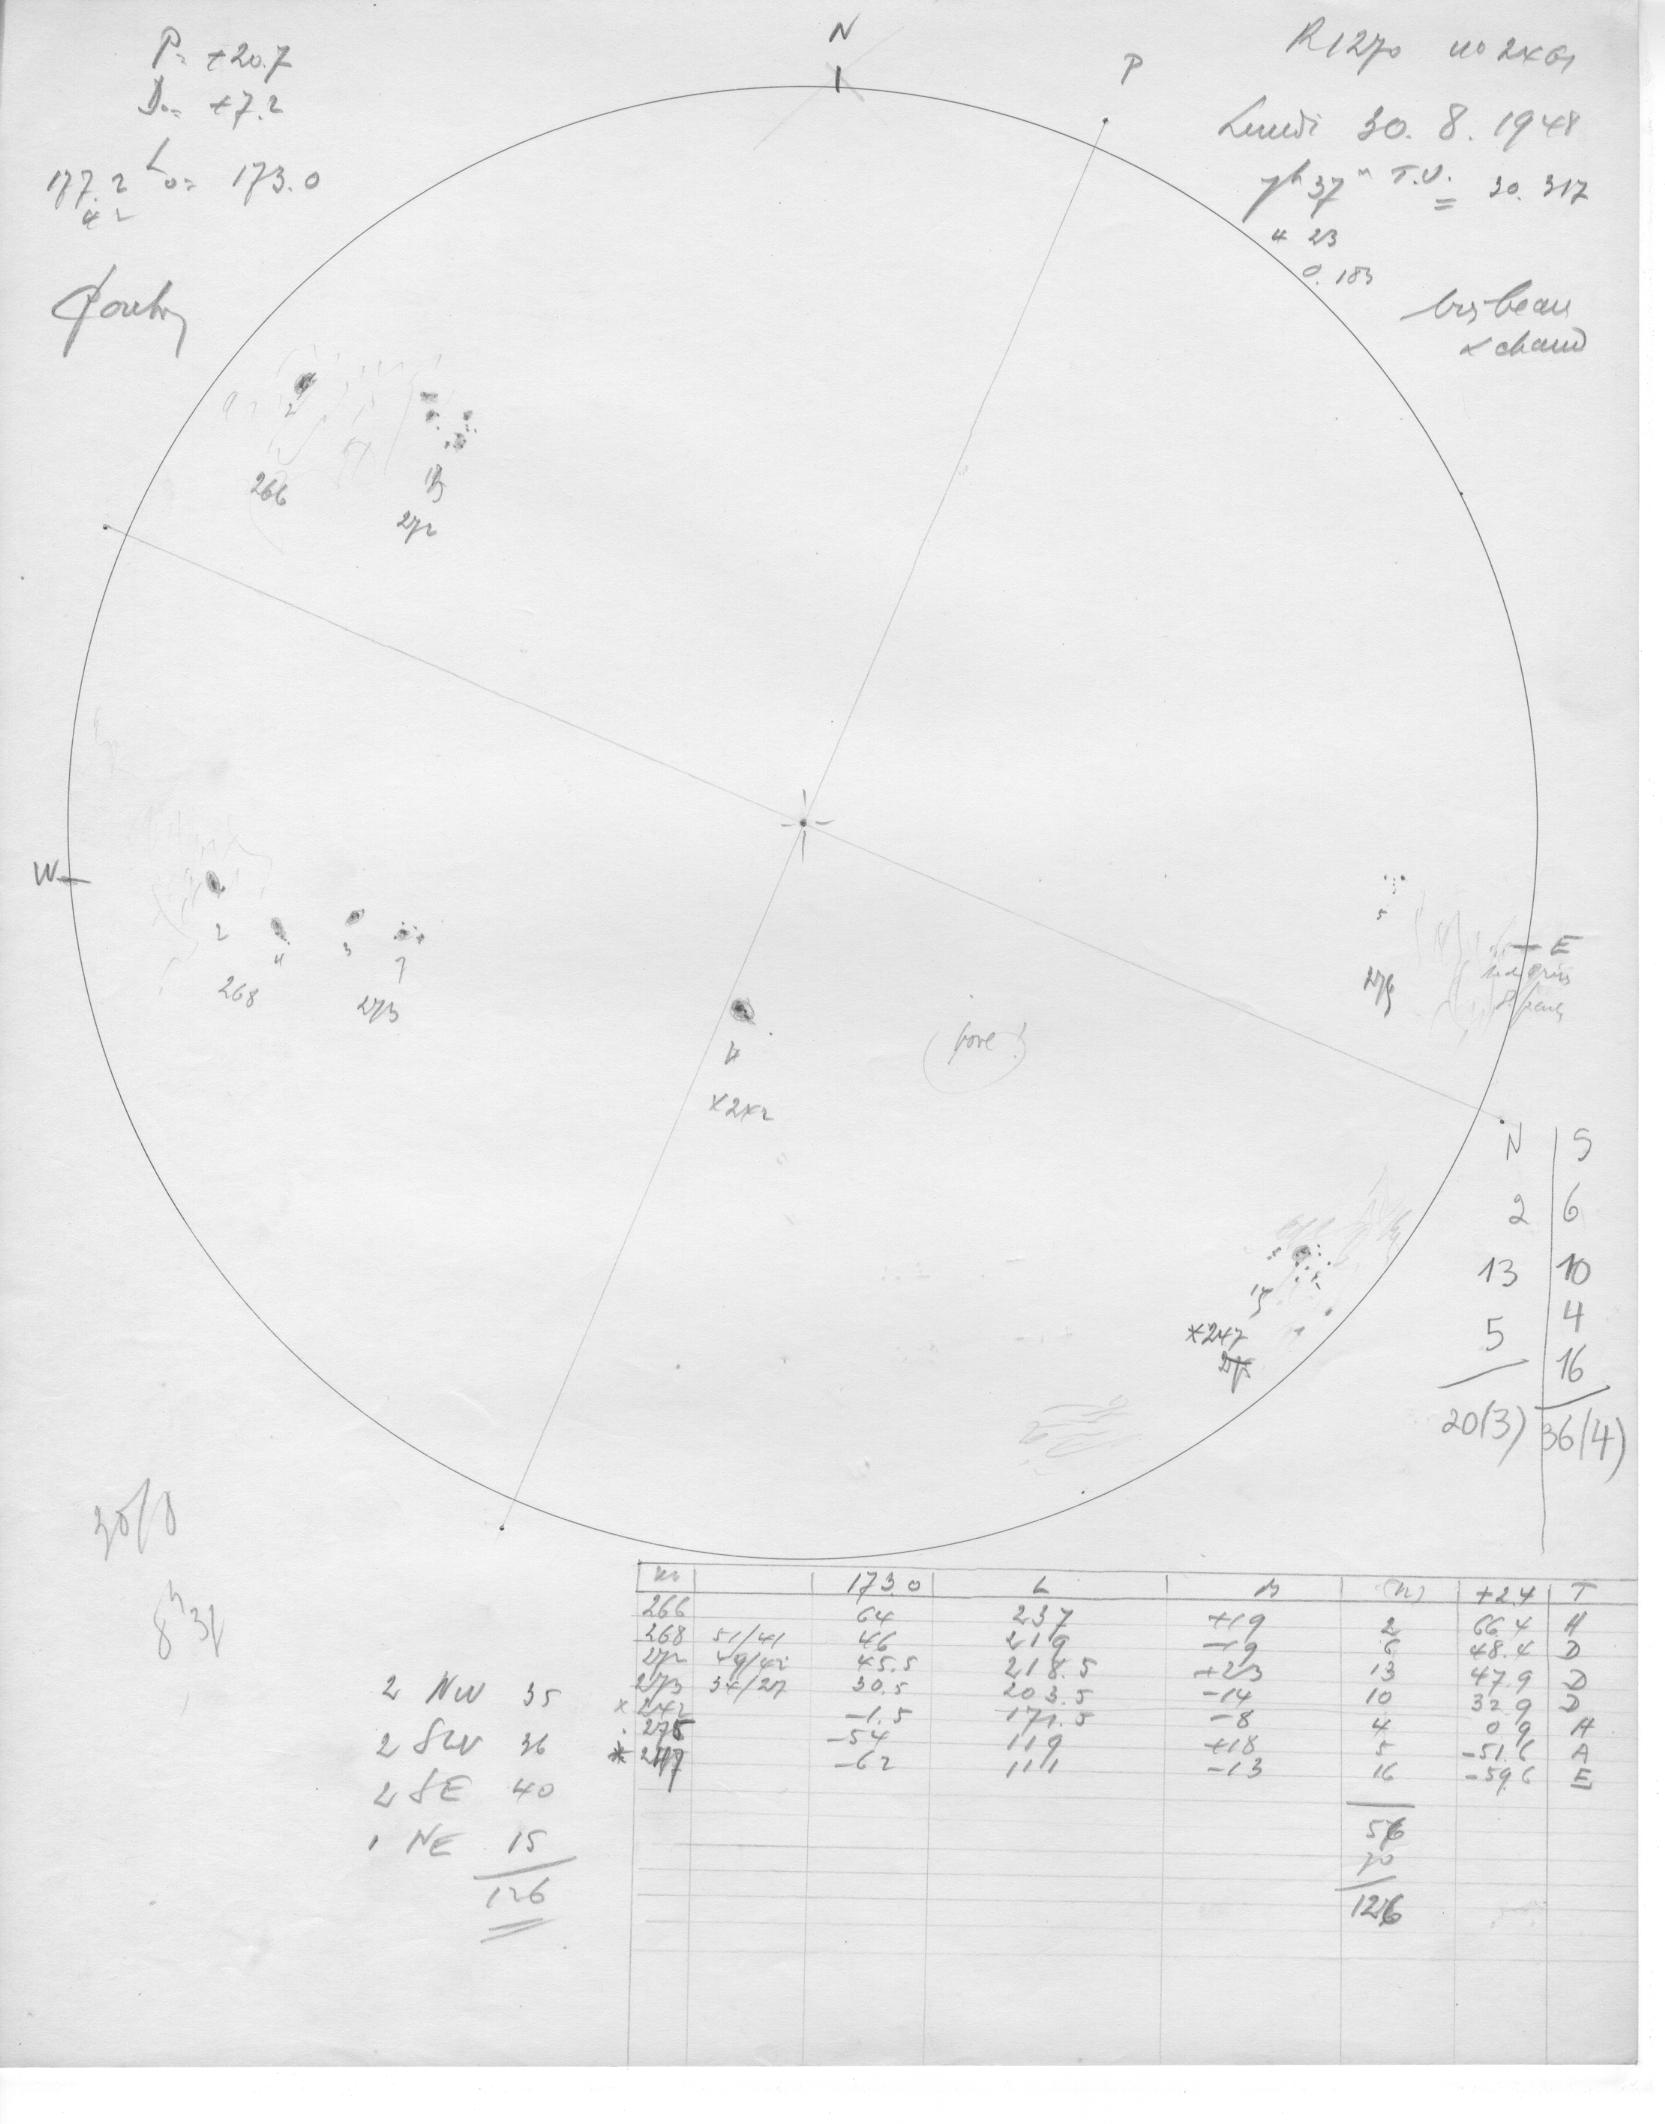 P= +20.7
D₀= +7.2
L₀= 173.0
177.2
4 2
N
P
R1270
Lundi 30. 8. 1948
7h 37m T.U. = 30. 317
4 23
0. 183
chaud
2
266
13
272
W
2
4
3
7
268
273
4
5
E
N | S
2 | 6
13 | 10
5 | 4
16
20(3) | 36(4)
*247
30/8
173.0 L B (n) +2.4 T
266 64 237 +19 2 66.4 H
268 51/41 46 219 -19 6 48.4 D
272 49/42 45.5 218.5 +23 13 47.9 D
273 34/27 30.5 203.5 -14 10 32.9 D
x 242 -1.5 171.5 -8 4 0.9 H
275 -54 119 +18 5 -51.6 A
* 247 -62 111 -13 16 -59.6 E
56
70
126
2 NW 35
2 SW 36
2 SE 40
1 NE 15
126